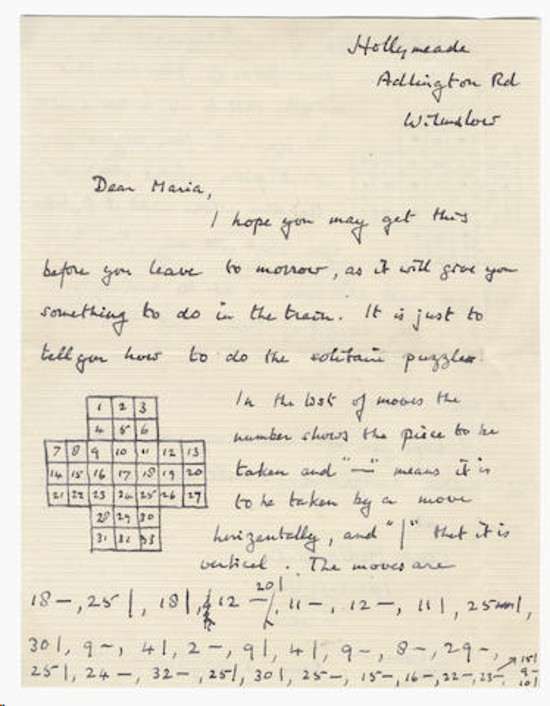 Hollymeade
Adlington Rd
Wilmslow
Dear Maria,
I hope you may get this
before you leave to morrow, as it will give you
something to do in the train. It is just to
tell you how to do the solitaire puzzle.
In the list of moves the
number shows the piece to be
taken and "—" means it is
to be taken by a move
horizontally, and "|" that it is
vertical. The moves are
1 2 3
4 5 6
7 8 9 10 11 12 13
14 15 16 17 18 19 20
21 22 23 24 25 26 27
28 29 30
31 32 33
20|
18 –, 25 |, 18 |, 12 –, 11 –, 12 –, 11 |, 25 |,
30 |, 9 –, 4 |, 2 –, 9 |, 4 |, 9 –, 8 –, 29 –,
25 |, 24 –, 32 –, 25 |, 30 |, 25 –, 15 –, 16 –, 22 –, 23 –,
15 |
9 –
10 |